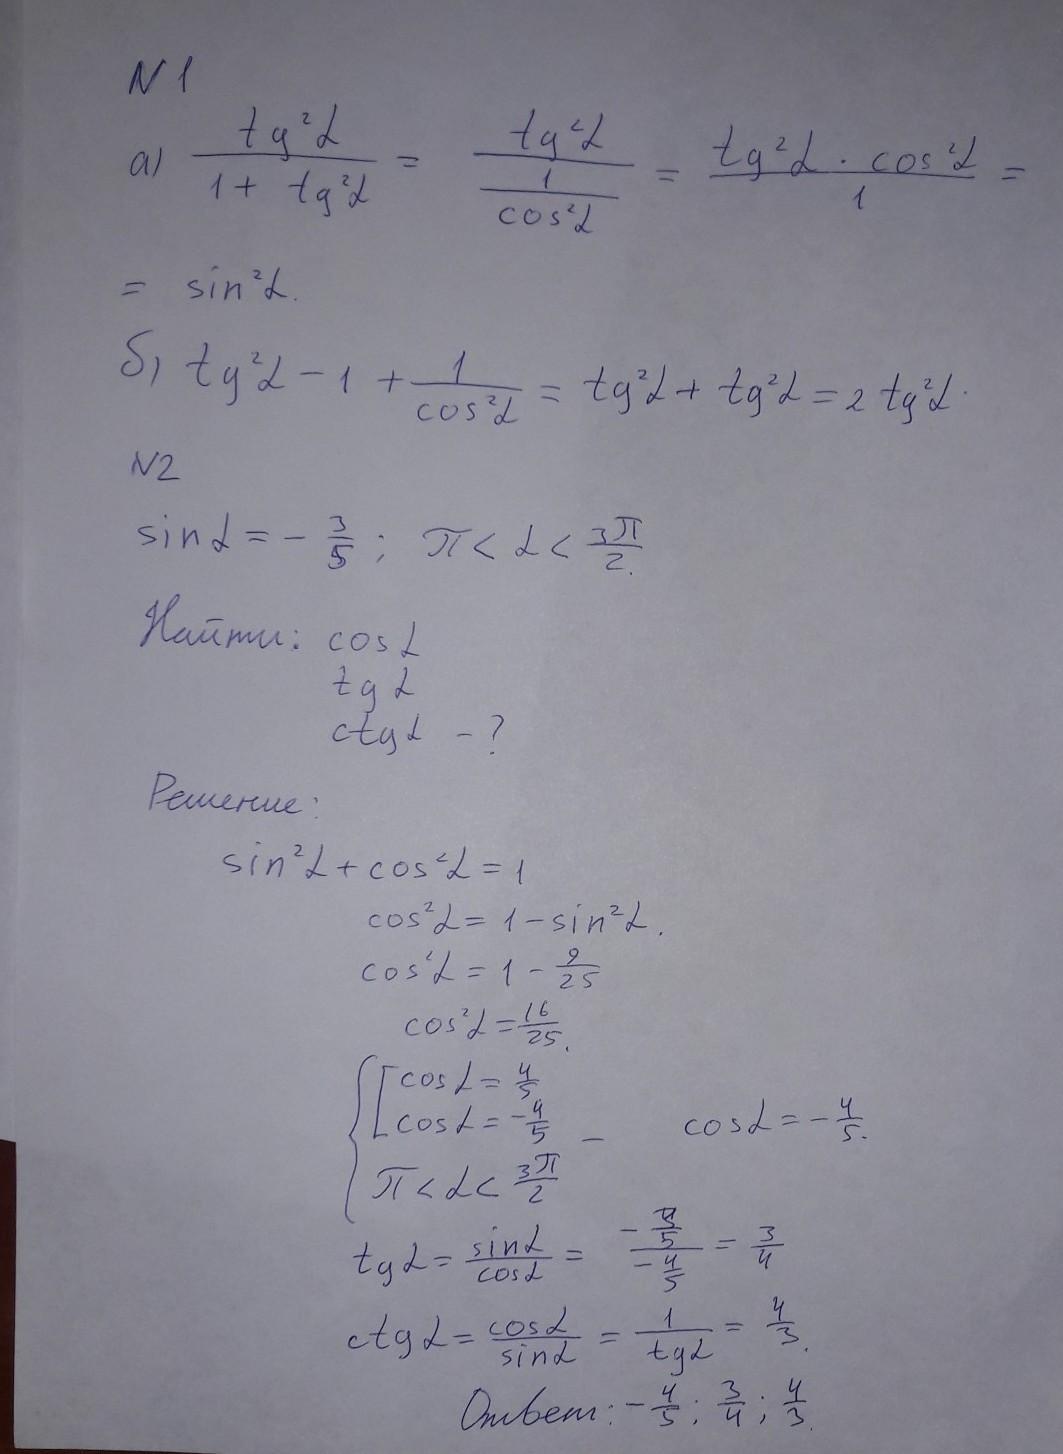 N 1
а) tg²α / (1 + tg²α) = tg²α / (1/cos²α) = (tg²α · cos²α) / 1 =
= sin²α.
б) tg²α - 1 + 1/cos²α = tg²α + tg²α = 2 tg²α.
N2
sin α = - 3/5 ; π < α < 3π/2.
Найти: cos α
tg α
ctg α - ?
Решение:
sin²α + cos²α = 1
cos²α = 1 - sin²α.
cos²α = 1 - 9/25
cos²α = 16/25.
{ [ cos α = 4/5
cos α = -4/5 - cos α = - 4/5.
π < α < 3π/2
tg α = sin α / cos α = (- 3/5) / (- 4/5) = 3/4
ctg α = cos α / sin α = 1 / tg α = 4/3.
Ответ: - 4/5 ; 3/4 ; 4/3.